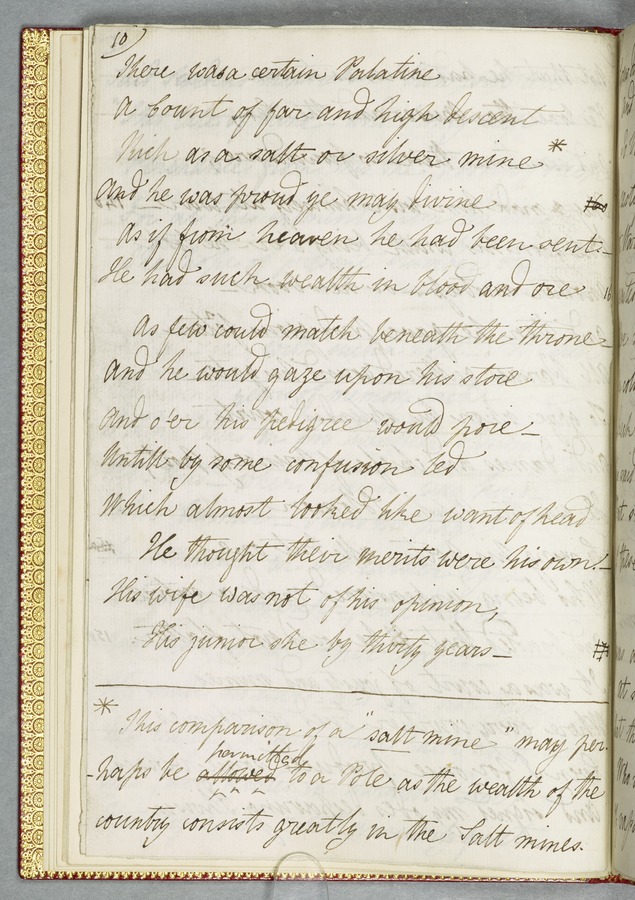 10)
There was a certain Palatine
A Count of far and high descent
Rich as a salt or silver mine *
And he was proud ye may divine 160
As if from heaven he had been sent:–
He had such wealth in blood and ore 16
As few could match beneath the throne–
And he would gaze upon his store
And o'er his pedigree would pore –
Untill by some confusion led
Which almost looked like want of head
He thought their merits were his own! –
His wife was not of his opinion,
His junior she by thirty years –
*
This comparison of a "salt mine" may per-
permitted
-haps be allowed to a Pole as the wealth of the
country consists greatly in the Salt mines.